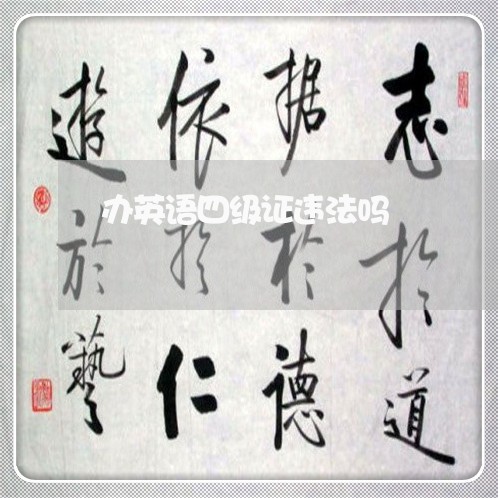 志於道
据於德
依於仁
遊於藝
办英语四级证违法吗